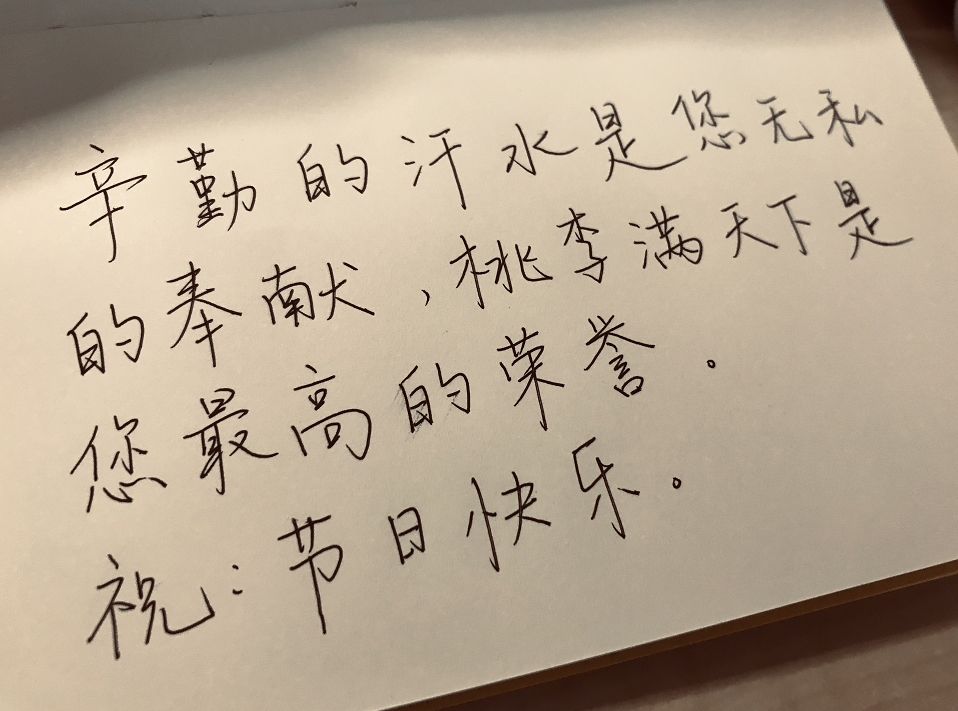 辛勤的汗水是您无私
的奉献，桃李满天下是
您最高的荣誉.
祝：节日快乐。